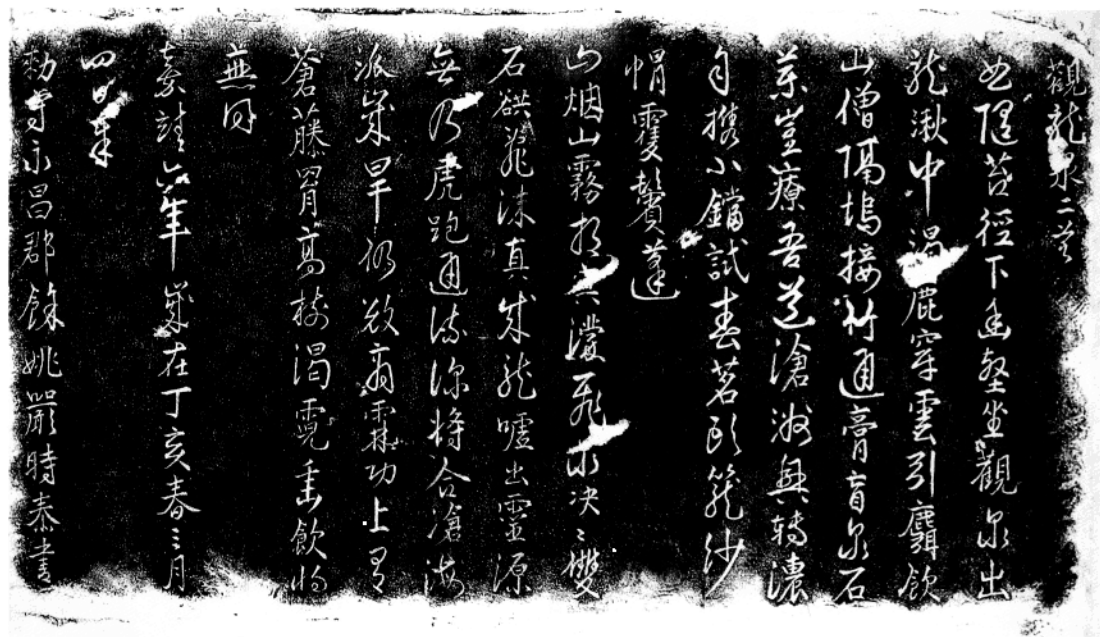 觀龍泉二首
也隨苔徑下幽壑坐觀泉出
龍湫中渴鹿穿雲引麝飲
山僧隔塢接竹通膏盲泉石
業豈療吾道滄洲興轉濃
自攜小鐺試春茗欹籠紗
帽霎鬢蓬
山烟山霧相濛飛決〻雙
石罅飛沫真成龍嘘出靈源
無乃虎跑通流將合滄海
派歲旱仍效霖功上有
蒼藤罥高樹渴霓垂飲

嘉靖六年歲在丁亥春三月
四日
勅守永昌郡餘姚嚴時泰書